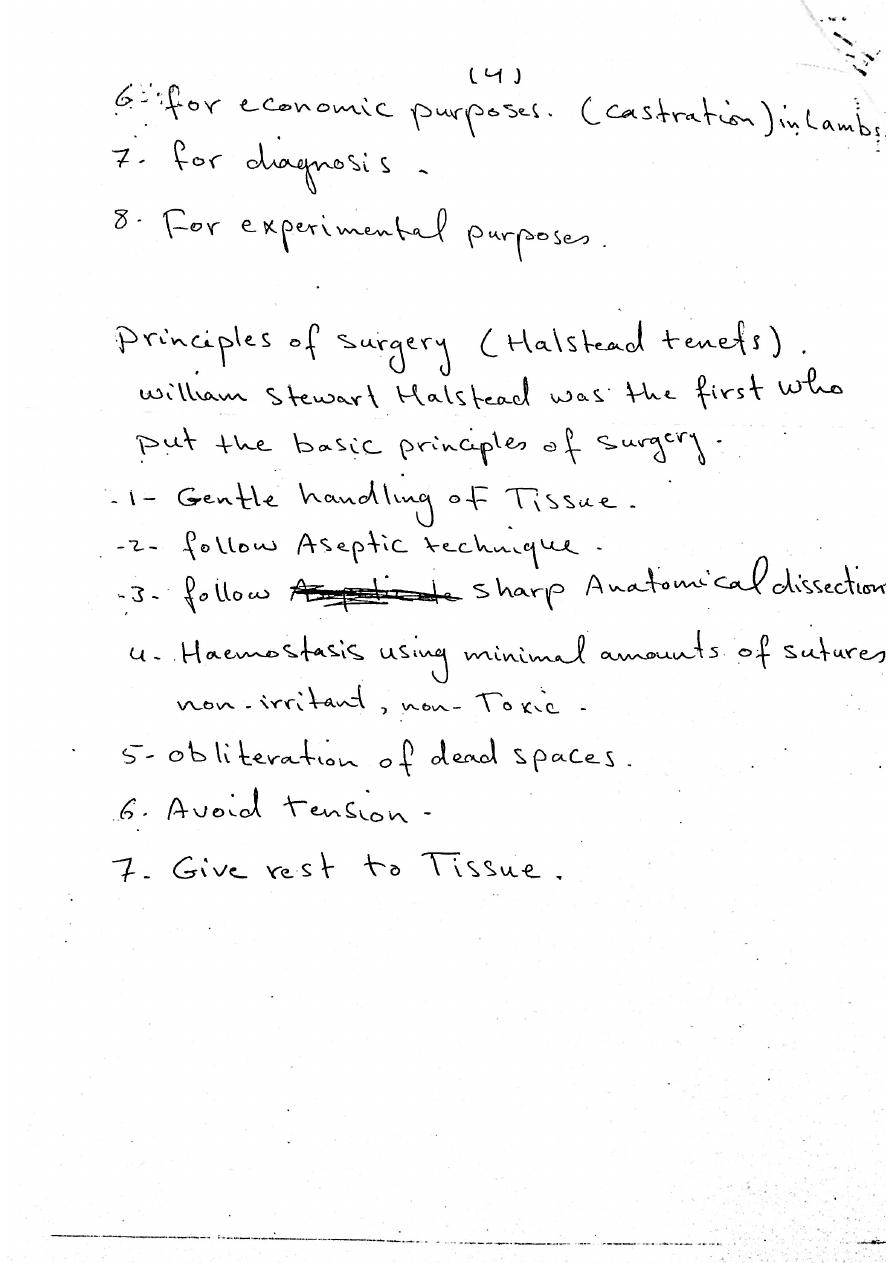 (4)
6- for economic purposes. (castration) in Lambs
7. for diagnosis.
8. For experimental purposes.
Principles of surgery (Halstead tenets).
william Stewart Halstead was the first who
put the basic principles of surgery.
-1- Gentle handling of Tissue.
-2- follow Aseptic technique.
-3- follow sharp Anatomical dissection
4-. Haemostasis using minimal amounts of sutures
non-irritant, non-Toxic.
5- obliteration of dead spaces.
6. Avoid tension-
7. Give rest to Tissue.